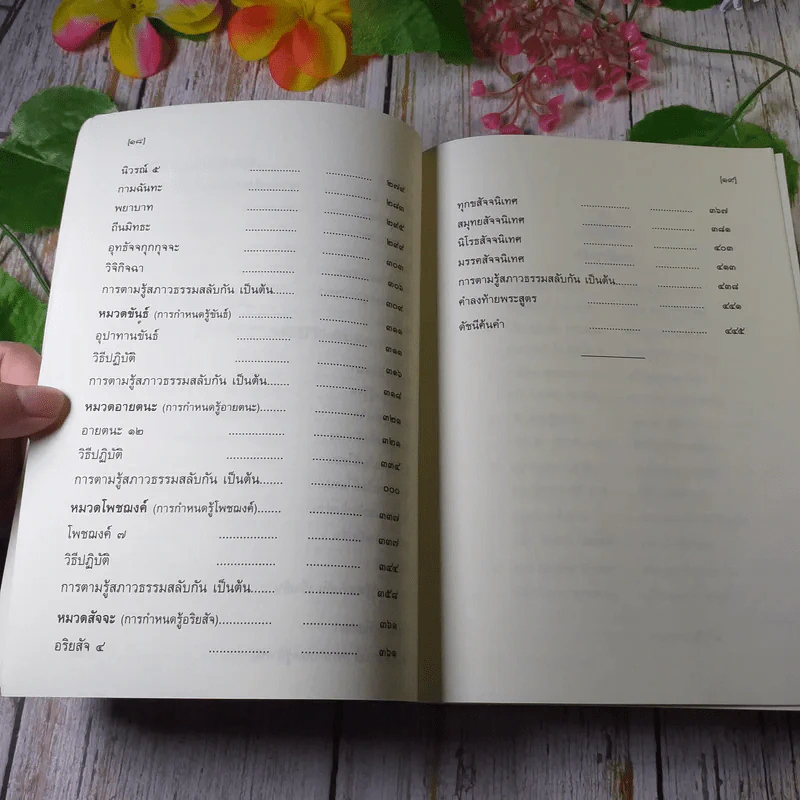 [๑๘]
นิวรณ์ ๕ .................. .............. ๒๗๔
กามฉันทะ .................. .............. ๒๘๓
พยาบาท .................. .............. ๒๙๕
ถีนมิทธะ .................. .............. ๒๙๙
อุทธัจจกุกกุจจะ .................. .............. ๓๐๑
วิจิกิจฉา .................. .............. ๓๐๖
การตามรู้สภาวธรรมสลับกัน เป็นต้น....... .............. ๓๐๙
หมวดขันธ์ (การกำหนดรู้ขันธ์) .............. ๓๑๑
อุปาทานขันธ์ .................. .............. ๓๑๑
วิธีปฏิบัติ .................. .............. ๓๑๖
การตามรู้สภาวธรรมสลับกัน เป็นต้น....... .............. ๓๑๘
หมวดอายตนะ (การกำหนดรู้อายตนะ)........ .............. ๓๒๑
อายตนะ ๑๒ .................. .............. ๓๒๑
วิธีปฏิบัติ .................. .............. ๓๓๔
การตามรู้สภาวธรรมสลับกัน เป็นต้น....... .............. ๐๐๐
หมวดโพชฌงค์ (การกำหนดรู้โพชฌงค์)....... .............. ๓๓๗
โพชฌงค์ ๗ .................. .............. ๓๓๗
วิธีปฏิบัติ .................. .............. ๓๔๔
การตามรู้สภาวธรรมสลับกัน เป็นต้น....... .............. ๓๕๘
หมวดสัจจะ (การกำหนดรู้อริยสัจ)................ .............. ๓๖๑
อริยสัจ ๔ .................. .............. ๓๖๑
[๑๙]
ทุกขสัจจนิเทศ .................. .............. ๓๖๗
สมุทยสัจจนิเทศ .................. .............. ๓๘๑
นิโรธสัจจนิเทศ .................. .............. ๔๐๓
มรรคสัจจนิเทศ .................. .............. ๔๑๓
การตามรู้สภาวธรรมสลับกัน เป็นต้น....... .............. ๔๓๘
คำลงท้ายพระสูตร .................. .............. ๔๔๑
ดัชนีค้นคำ .................. .............. ๔๔๕